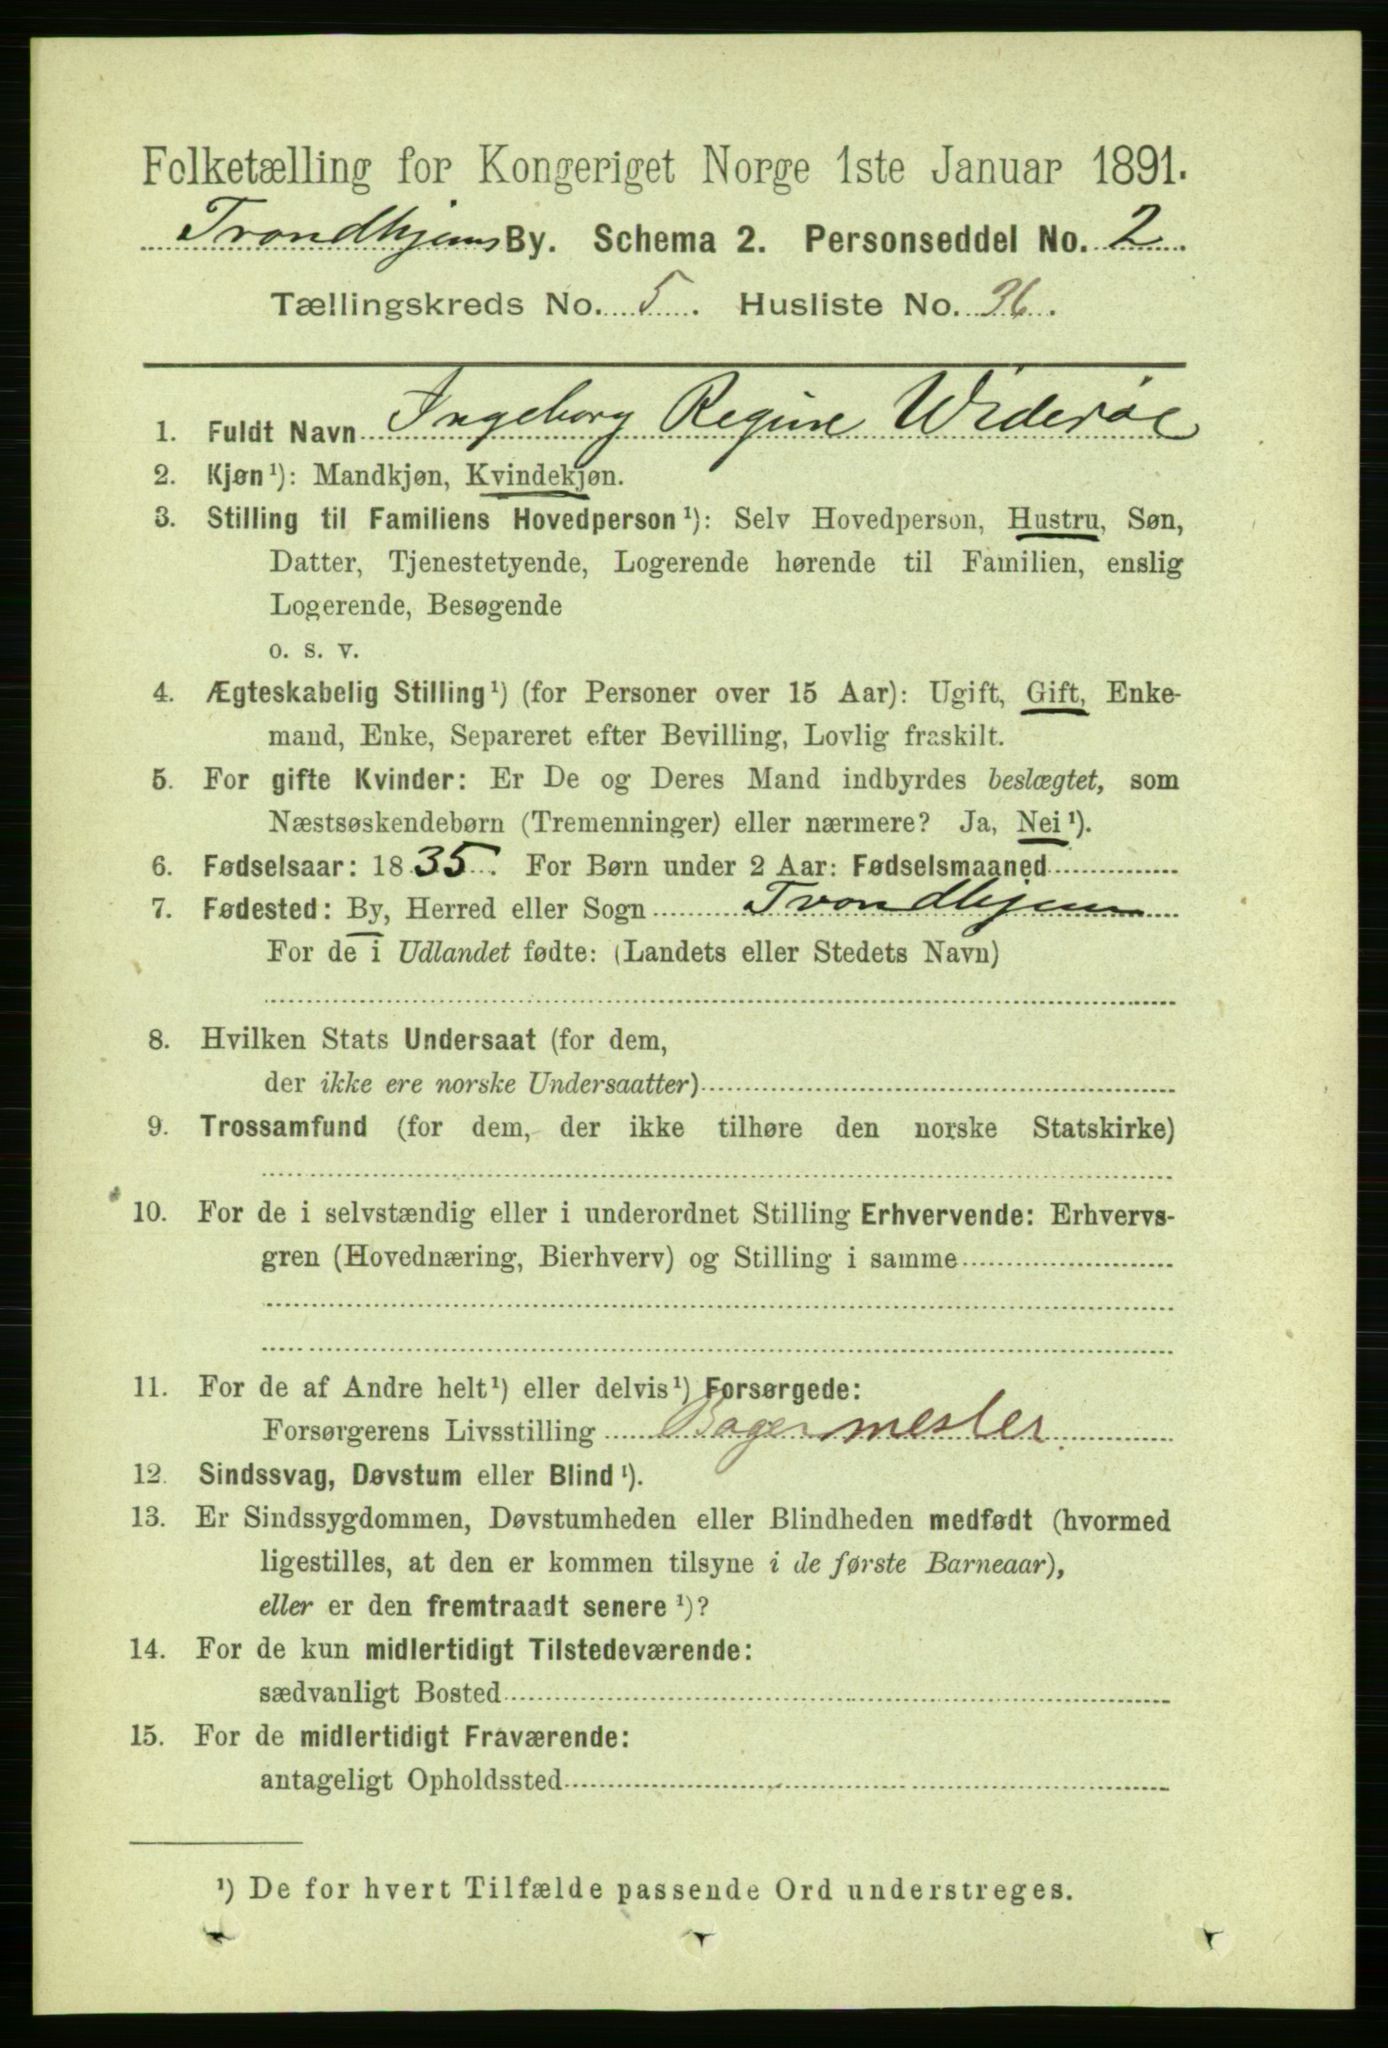 Folketælling for Kongeriget Norge 1ste Januar 1891.
Trondhjems By. Schema 2. Personseddel No. 2.
Tællingskreds No. 5. Husliste No. 36.
1. Fuldt Navn Ingeborg Regine Widerøe
2. Kjøn¹): Mandkjøn, Kvindekjøn.
3. Stilling til Familiens Hovedperson¹): Selv Hovedperson, Hustru, Søn,
Datter, Tjenestetyende, Logerende hørende til Familien, enslig
Logerende, Besøgende
o. s. v.
4. Ægteskabelig Stilling¹) (for Personer over 15 Aar): Ugift, Gift, Enke-
mand, Enke, Separeret efter Bevilling, Lovlig fraskilt.
5. For gifte Kvinder: Er De og Deres Mand indbyrdes beslægtet, som
Næstsøskendebørn (Tremenninger) eller nærmere? Ja, Nei¹).
6. Fødselsaar: 1835. For Børn under 2 Aar: Fødselsmaaned
7. Fødested: By, Herred eller Sogn Trondhjem
For de i Udlandet fødte: (Landets eller Stedets Navn)
8. Hvilken Stats Undersaat (for dem,
der ikke ere norske Undersaatter)
9. Trossamfund (for dem, der ikke tilhøre den norske Statskirke)
10. For de i selvstændig eller i underordnet Stilling Erhvervende: Erhvervs-
gren (Hovednæring, Bierhverv) og Stilling i samme
11. For de af Andre helt¹) eller delvis¹) Forsørgede:
Forsørgerens Livsstilling Bagermester.
12. Sindssvag, Døvstum eller Blind¹).
13. Er Sindssygdommen, Døvstumheden eller Blindheden medfødt (hvormed
ligestilles, at den er kommen tilsyne i de første Barneaar),
eller er den fremtraadt senere¹)?
14. For de kun midlertidigt Tilstedeværende:
sædvanligt Bosted
15. For de midlertidigt Fraværende:
antageligt Opholdssted
¹) De for hvert Tilfælde passende Ord understreges.